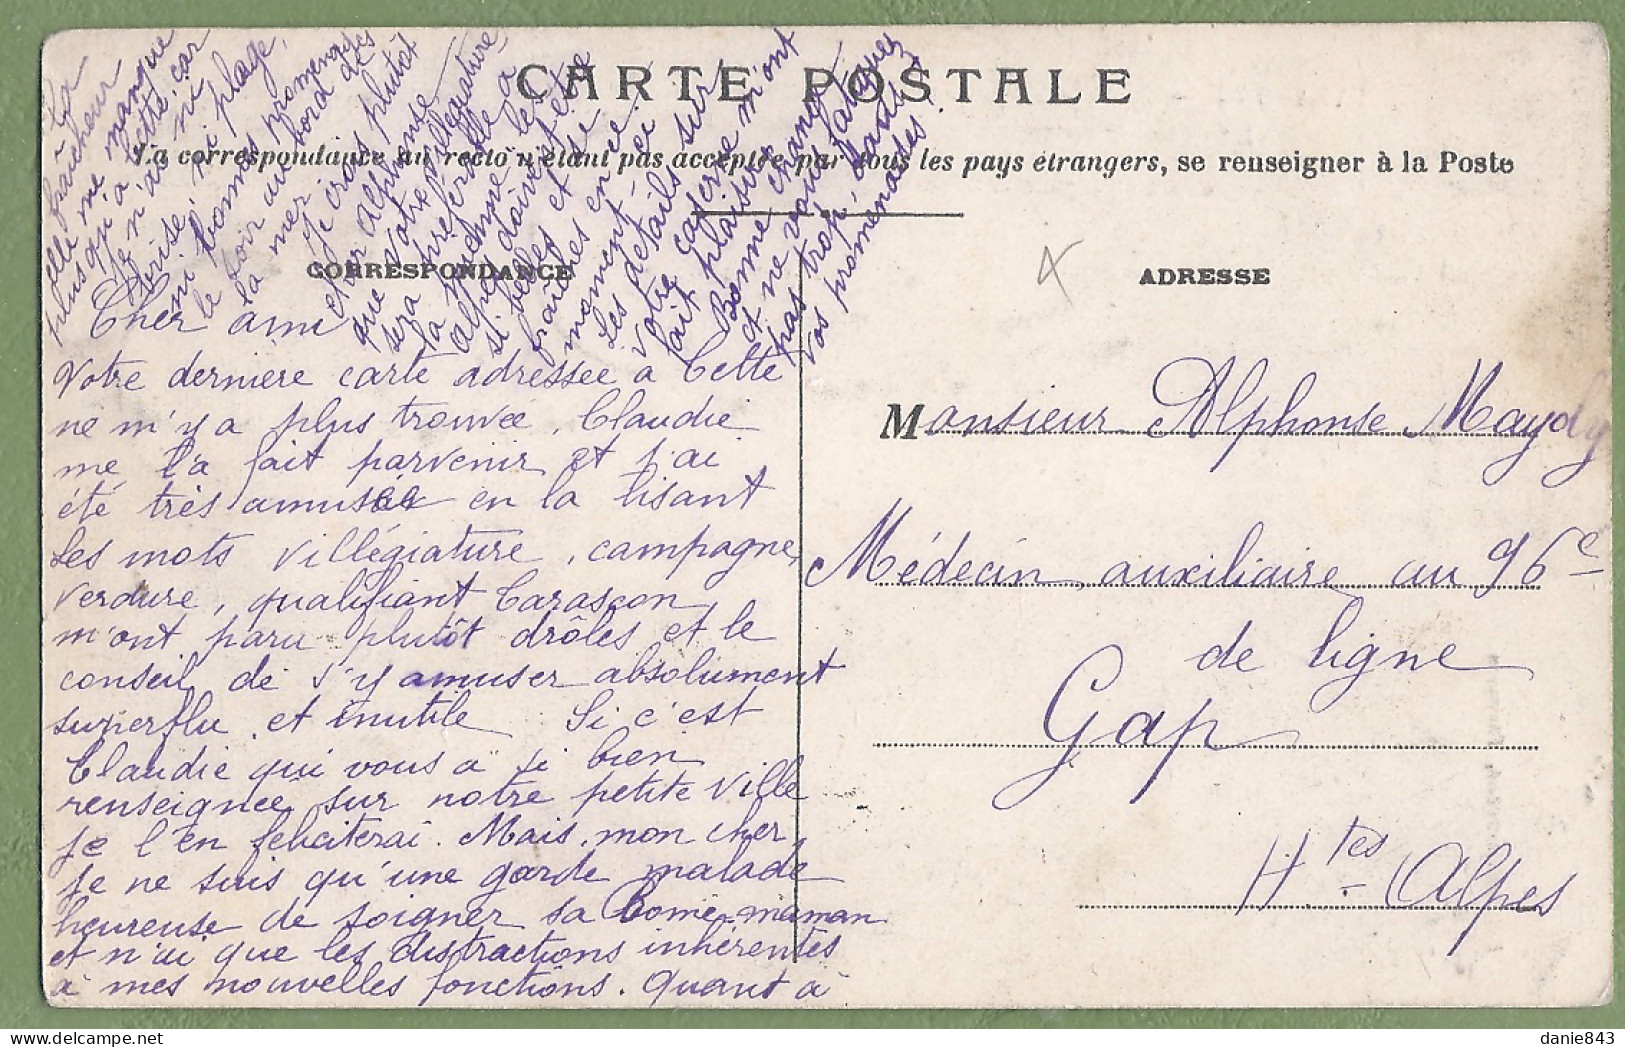 CARTE POSTALE
La correspondance au recto n'étant pas acceptée par tous les pays étrangers, se renseigner à la Poste
CORRESPONDANCE
ADRESSE
Cher ami
Votre dernière carte adressée à Cette
ne m'y a plus trouvée, Claudie
me l'a fait parvenir et j'ai
été très amusée en la lisant
Les mots villégiature, campagne,
verdure, qualifiant Tarascon
m'ont paru plutôt drôles et le
conseil de s'y amuser absolument
superflu et inutile Si c'est
Claudie qui vous a si bien
renseignée sur notre petite ville
je l'en féliciterai. Mais, mon cher,
je ne suis qu'une garde malade
heureuse de soigner sa bonne maman
et n'ai que les distractions inhérentes
à mes nouvelles fonctions. Quant à
La
fraîcheur
elle me manque
plus qu'à Cette, car
je n'ai ni
brise, ni plage,
ni bonnes promenades
le soir au bord de
la mer
Je crois plutôt
cher Alphonse
que votre villégiature
sera préférable à
la mienne, les
alpes doivent être
si belles et si
fraîches en ce
moment ici
Les détails sur
votre caserne m'ont
fait plaisir
Bonne chance
et ne vous fatiguez
pas trop, dans
vos promenades.
Monsieur Alphonse Maydy
Médecin auxiliaire au 96e
de ligne
Gap
Htes Alpes
danie843